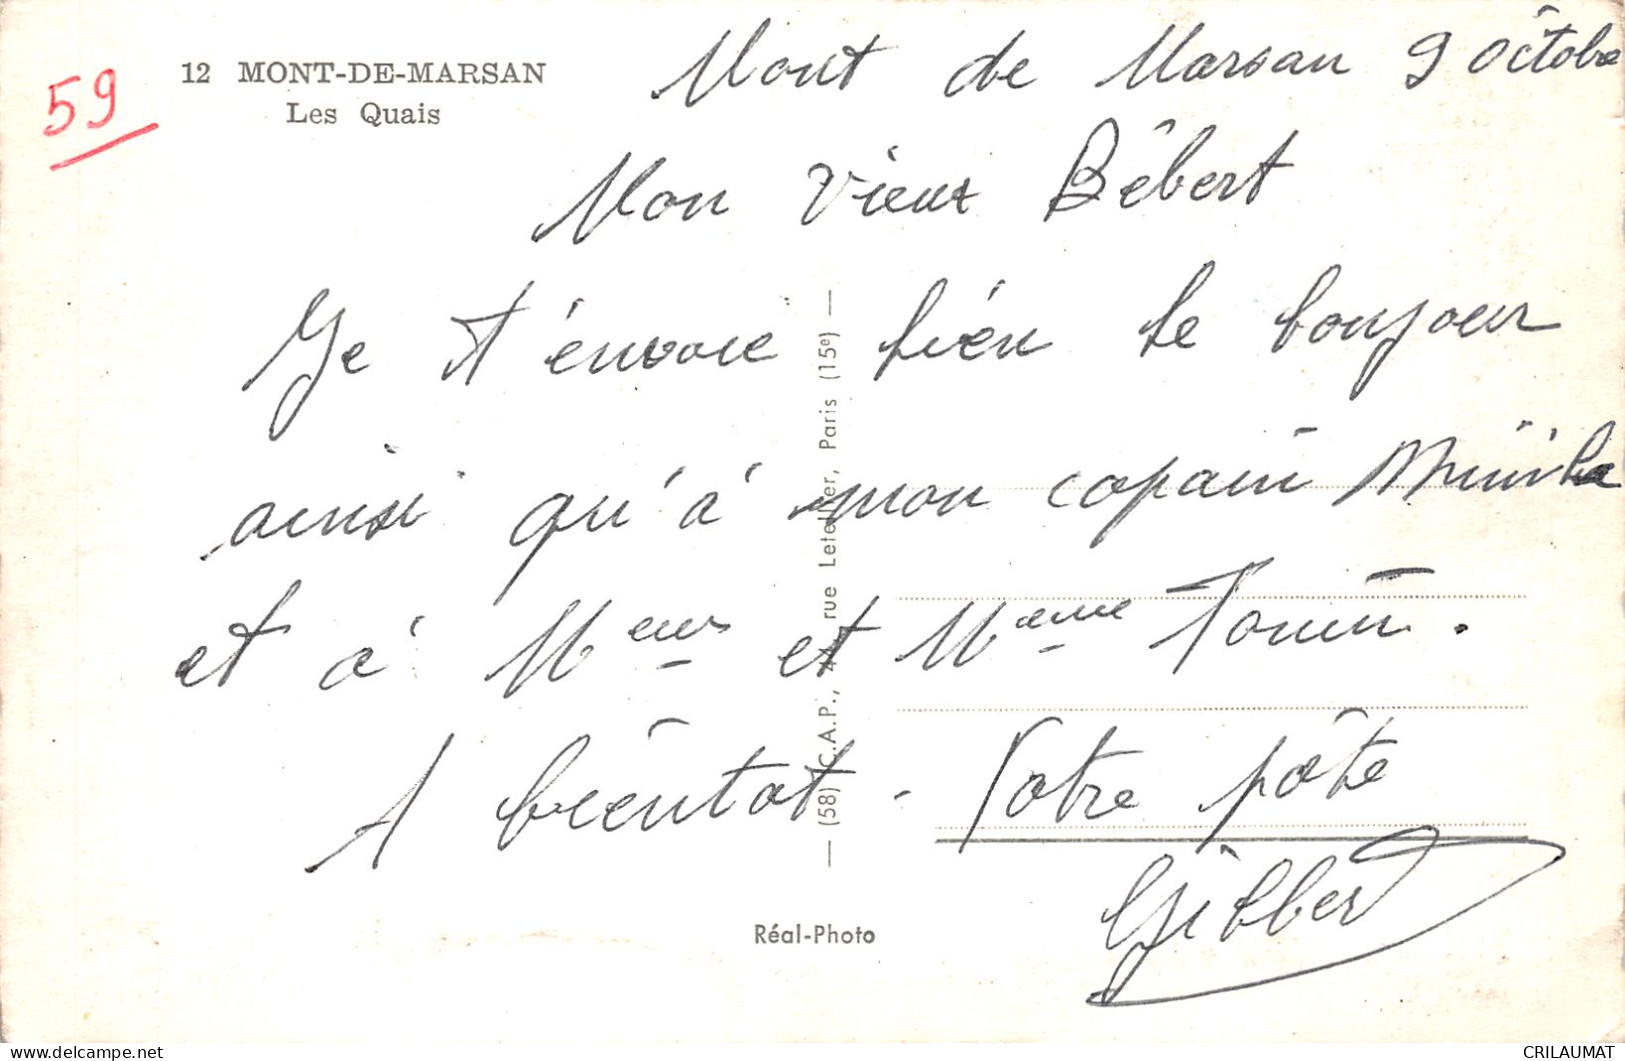 59
12 MONT-DE-MARSAN
Les Quais
Mont de Marsan 9 octobre
Mon vieux Bébert
Je t'envoie bien le bonjour
ainsi qu'à mon copain
et à Meur et Meme Tonin.
A bientot - Votre pôte
Gilbert
— (58) C.A.P., rue Letellier, Paris (15e) —
Réal-Photo
CRILAUMAT